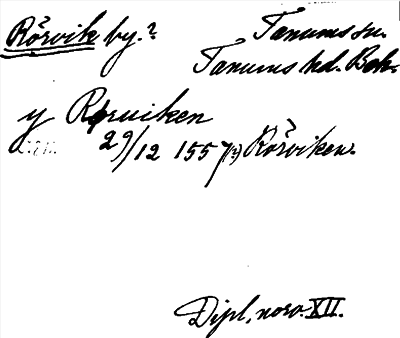 Rörvik by.? Tanums sn.
Tanums hd. Boh.
y Røruiken
29/12 1557(?) Rörviken.
Dipl. norv. XII.